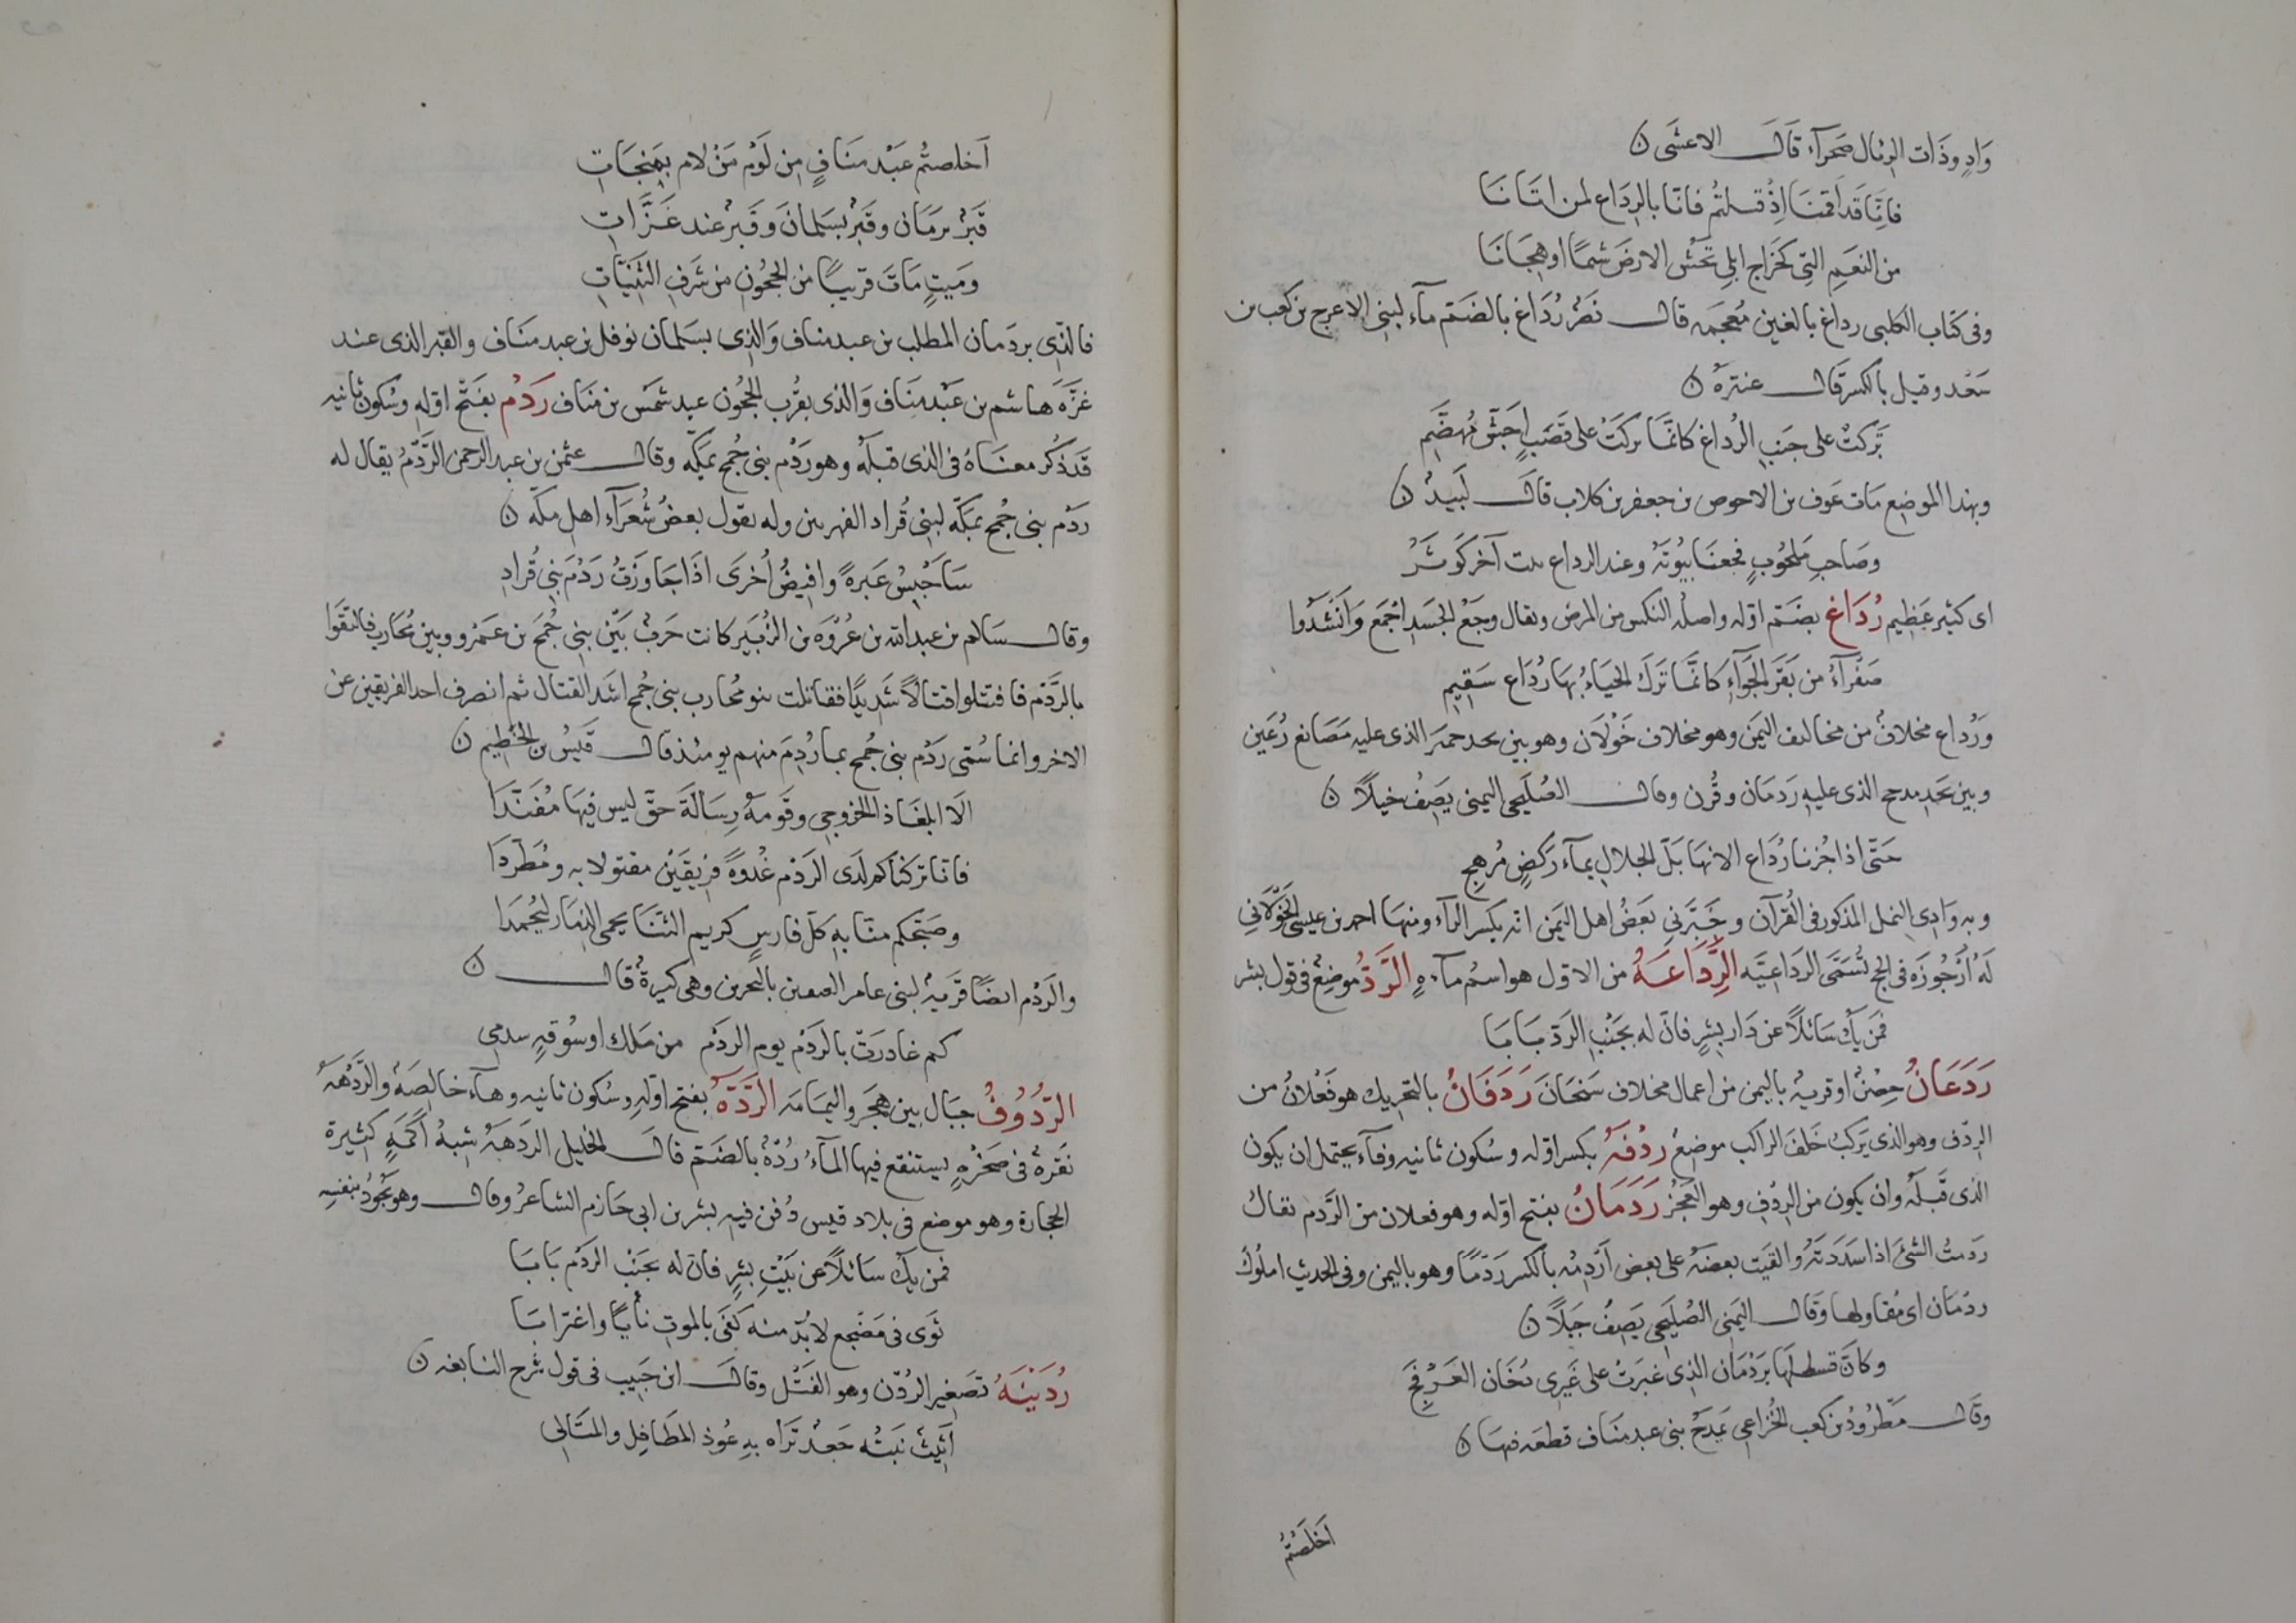 وَادٍ وذَات الرمال صَحرَآء قَال الاعشَى ن
فانَّا قد اَقمنَا اِذْ فسلتُم فانّا بالرِدَاع لمن اتَانَا
من النعَمِ التِى كخَراج ابلى تحُش الارضَ شمًا او هِجَانَا
وفى كتاب الكلبى رداغ بالغين مُعجمه قال نَصْر رُدَاغ بالضَم مآء لبنى الاعرج بن كعب بن
سَعْد وقيل بالكسر قال عنترهْ ن
بَرَكتْ على جَنبِ الرُداغ كانّمَا بركَتْ على قَصَبٍ اجَشّ مُهضَّم
وبهذا الموضِع مَات عَوف بن الاحوص بن جعفر بن كلاب قال لَبيدْ ن
وصَاحبِ مَلحُوبٍ فجعنَا بيُوتَهْ وعند الرداع بيت آخر كَوثَرُ
اى كثير عَظِيم رُدَاغ بضَم اوّله واصلُه النكس من المرض ويقال وجَعْ الجَسَدِ اجْمَع وَانشَدُوا
صَفْرآءُ من بَقَر الجَوَآءِ كانَّما تَرَكَ الحَيَاءُ بهَا رُدَاع سَقِيمِ
ورُدَاع مخلافْ من مخاليف اليَمَن وهو مخلاف خَوْلَان وهو بين نجد حمير الذى عليه مَصَانع رُعَين
وبين نجد مدحج الذى عليهِ رَدمَان وقُرن وقال الصُلَيحى اليمنى يَصِفُ خيلاً ن
حَتّى اذا جُزنا رُدَاع الانهَا بَلّ الجلالِ بمآء رَكضٍ مُرهِجِ
وبه وَادِى النمل المذكور فى القرآن وخَبّرنِي بعَضُ اهل اليَمن انّه بكسر الرآء ومنهَا احمد بن عيسى الخَوْلَانِي
لَهُ اُرْجُوزَه فى الحج تُسَمّى الردَاعيَّه الرِّدَاعَهُ من الاوّل هو اسمُ مآءهٍ الرَّدّ موضِعْ فى قول بشر
فمَن يكُ سَائلاً عن دَار بِشرٍ فانّ له بجَنْبِ الرّدّ بَابَا
رَدَعَانُ حِصْنْ او قريهْ باليمن من اعمال مخلاف سَنحَان رَدَفَانُ بالتحريك هو فَعَلانُ من
الردف وهو الذى يَركبُ خَلفَ الراكب موضعْ رِدْفَهْ بكسر اوّله وسُكون ثانيه وفآء يحتمل ان يكون
الذى قبلهْ وان يكون من الردْفِ وهو العَجُز رَدَمَانُ بفتح اوّله وهو فعلان من الرَّدْم يقال
ردَمتُ الشئَ اذا سَدَدَتَه والقَيت بعضَهُ على بعض اَردِمُه بالكسر رَدْمًا وهو باليمن وفى الحديث املُوك
ردمَان اى مُقاولها وقَال اليَمَنِى الصُلَيحى يَصِفُ جَبَلًا ن
وكانَّ قسطلَها بَردمَان الذِى غبَرتْ على غَيرى دُخَان العَرْفَجَ
وقَال مَطرُودْ بن كعب الخزاعى يَمدَحُ بنى عبد مَنَاف قطعَه منهَا ن
اَخلَصْتُم
اَخلصتُم عَبْد مَنَافٍ من لَوْم مَنْ لام بمنجَاتِ
قَبْرْ برَمَان وقَبْر بسَلمَانَ وقَبْر عند غَزَّاتِ
ومَيتٍ مَاتَ قريبًا من الحجُونِ من شَرَفِ الثَنِيَّاتِ
فالذِى بردمان المطلب بن عبد مناف وَالذى بسَلمان نوفل بن عبد مَنَاف والقبر الذى عند
غَزَّه هَاشم بن عَبْد مَنَاف وَالذى بقُرب الحجُون عبد شَمْس بن مَنَاف رَدْم بفَتْح اوّله وسُكون ثانيه
قَد ذُكر معنَاهُ فى الذى قبلَهْ وهو رَدْم بنى جُمح بمَكّه وقال عثمن بن عبد الرحمن الرَّدْمُ يقال له
ردَم بنى جُمح بمَكّه لبنى قُراد الفهريين وله يقول بعضُ شُعَرَآء اهل مكّه ن
سَاَحْبِسُ عَبرةً وافِيضُ اُخرَى اذَا جَاوزَتُ رَدْمَ بنى قُرادِ
وقال سَالم بن عبد الله بن عُرْوَه بن الزُبَير كانت حَربْ بَيْن بنى جُمَح بن عَمْرو وبين مُحَارب فالتقَوا
بالرَّدْم فاقتتلوا قتالًا شَدِيدًا فقاتلت بنو مُحارب بنى جُمح اشدّ القتال ثم انصرف احد الفريقين عن
الاخر وانما سُمّى رَدْم بنى جُمح بما رُدِمَ منهم يومئذ قال قَيسُ بن الخَطِيم ن
الَا ابلغَا ذا الخزرجى وقَومهُ رِسَالَةَ حقّ ليس فيهَا مُفَنّدَا
فانّا تركناكم لَدَى الرَدْم غُدوةً فريقَيْن مقتولا به ومُطَرَّدَا
وصَبّحكم منّا بهِ كلّ فارسٍ كريم الثنَا يحمى الذِمَار ليُحمدَا
والرَدْم ايضًا قَريهْ لبنى عامر بالبحرين وهى كبيرةْ قال ن
كم غادرَتْ بالرَدْم يوم الردْم من مَلك او سُوقهٍ
الرُّدُوفُ جبَال بين هَجَر واليمَامَه الرَّدْهَهُ بفتح اوّلهِ وسُكون ثانيه وهآء خالصَهْ والرَّدْهَهُ
نقرهْ فى صَخرْهٍ يستنقع فيها المآءُ رُدّهْ بالضَم قال الخليل الردهَهْ شبهُ اَكَمَهٍ كثيرة
الحجارة وهو موضع فى بلاد قيس دُفن فيه بشر بن ابى حَازم الشاعرْ وقال وهو يجُودُ بنفسهِ
فمن يكُ سَائلاً عن بَيْتِ بِشرٍ فانّ له بجَنْبِ الردْم بَابَا
ثَوَى فى مَضْجع لابُدّ منه كَفَى بالموتِ نأيًا واغترابَا
رُدَيْنَهُ تصَغير الرُدْن وهو الفَتْل وقال ابن حَبيب فى قول شرح النابغه ن
اَثيثْ نبتُه جَعدْ تَرَاه بهِ عُوذ المطَافِل والمتَالِى